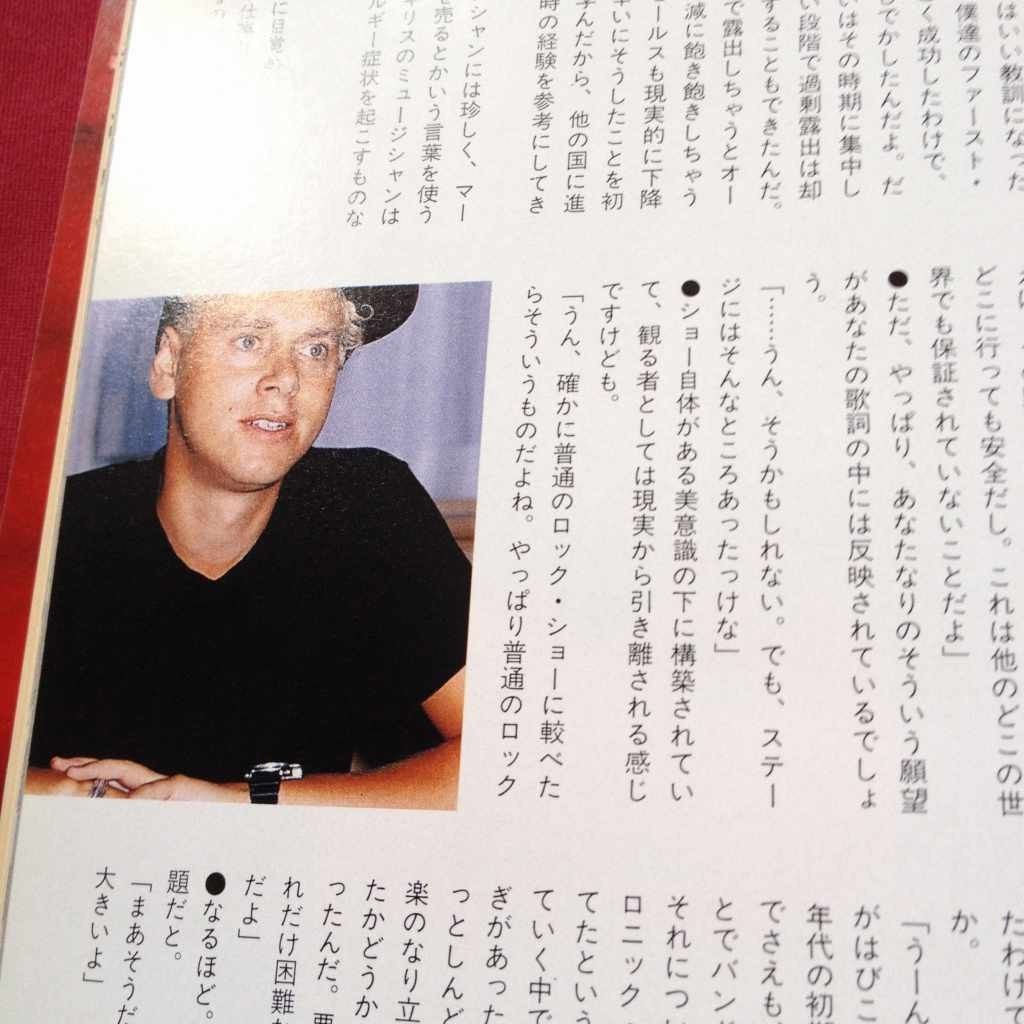 はいい教訓になった
僕達のファースト・
く成功したわけで、
しでかしたんだよ。だ
いはその時期に集中し
い段階で過剰露出は却
することもできたんだ。
で露出しちゃうとオー
減に飽き飽きしちゃう
ールスも現実的に下降
いにそうしたことを初
んだから、他の国に進
時の経験を参考にしてき
シャンには珍しく、マー
売るとかいう言葉を使う
ギリスのミュージシャンは
ルギー症状を起こすものな
どこに行っても安全だし。これは他のどこの世
界でも保証されていないことだよ」
●ただ、やっぱり、あなたなりのそういう願望
があなたの歌詞の中には反映されているでしょ
う。
「……うん、そうかもしれない。でも、ステー
ジにはそんなところあったっけな」
●ショー自体がある美意識の下に構築されてい
て、観る者としては現実から引き離される感じ
ですけども。
「うん、確かに普通のロック・ショーに較べた
らそういうものだよね。やっぱり普通のロック
たわけで
か。
「うーん
がはびこ
年代の初
でさえも
とでバン
それについ
ロニック
てたという
ていく中で
ぎがあった
っとしんど
楽のなり立
たかどうか
ったんだ。
れだけ困難
だよ」
●なるほど。
題だと。
「まあそうだ
大きいよ」